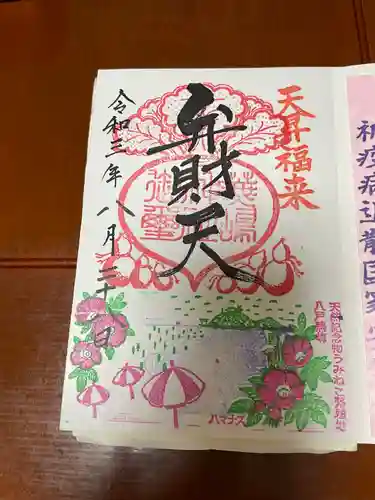 祈疫病退散国家
天昇福来
弁財天
令和三年八月三十一日
天然記念物うみねこ繁殖地
八戸蕪島
ハマナス